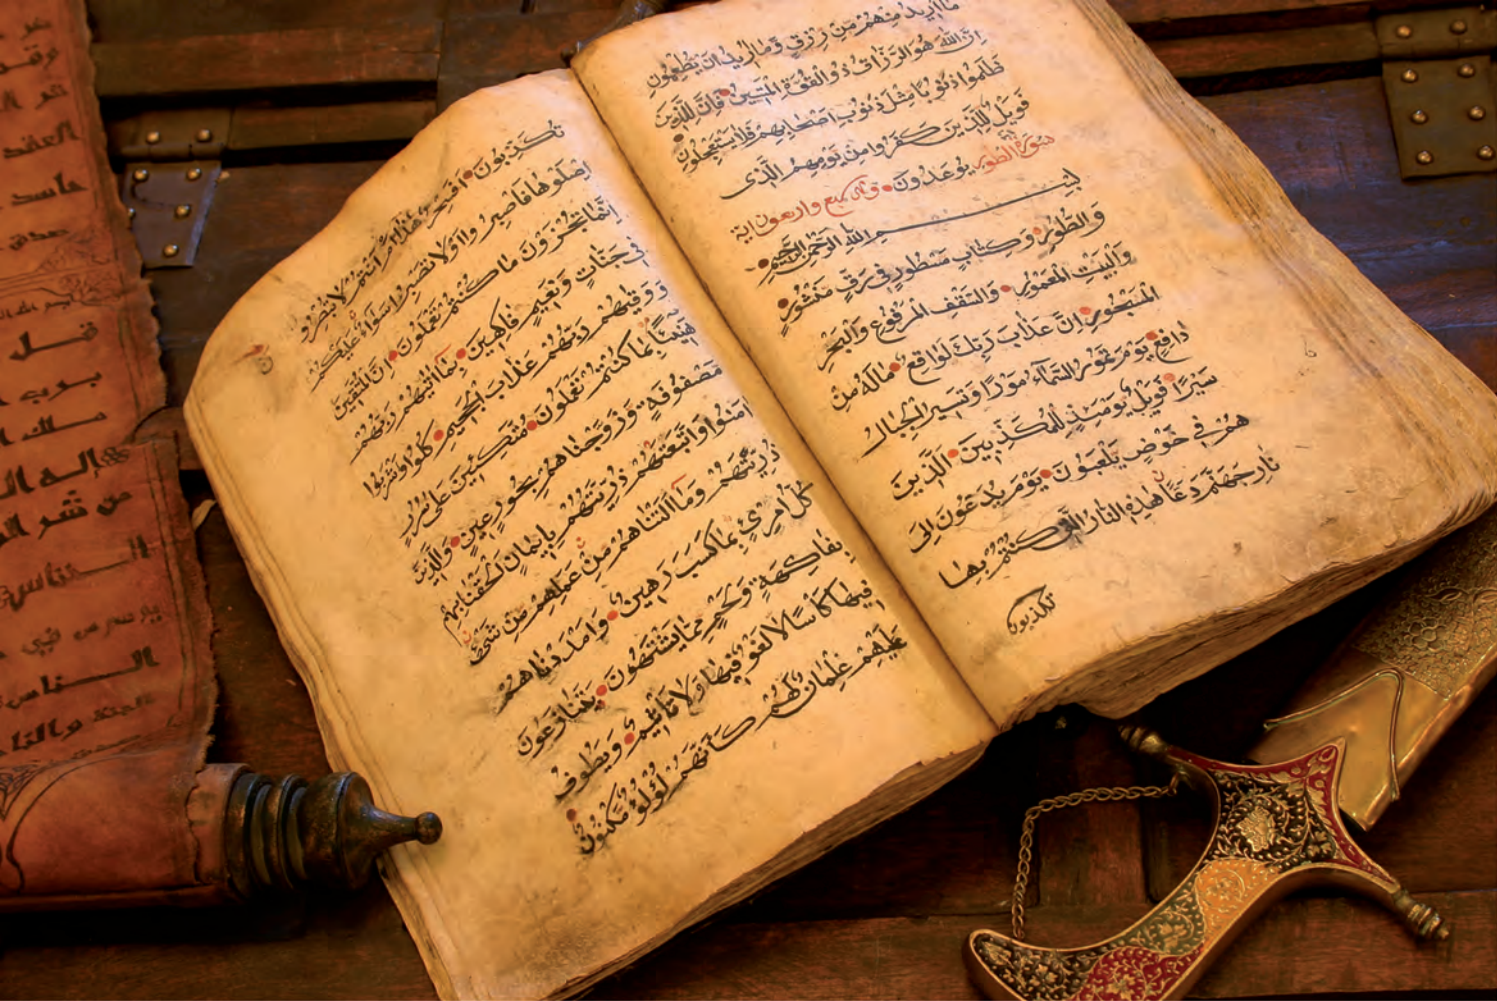 مَا أُرِيدُ مِنْهُمْ مِنْ رِزْقٍ وَمَا أُرِيدُ اَنْ يُطْعِمُونِ
اِنَّ اللّٰهَ هُوَ الرَّزَّاقُ ذُو الْقُوَّةِ الْمَتِينُ فَاِنَّ لِلَّذِينَ
ظَلَمُوا ذَنُوبًا مِثْلَ ذَنُوبِ اَصْحَابِهِمْ فَلَا يَسْتَعْجِلُونِ
فَوَيْلٌ لِلَّذِينَ كَفَرُوا مِنْ يَوْمِهِمُ الَّذِى
سورة الطور يُوعَدُونَ وهى سبع واربعون اية
بِسْمِ اللّٰهِ الرَّحْمٰنِ الرَّحِيمِ
وَالطُّورِ وَكِتَابٍ مَسْطُورٍ فِى رَقٍّ مَنْشُورٍ
وَالْبَيْتِ الْمَعْمُورِ وَالسَّقْفِ الْمَرْفُوعِ وَالْبَحْرِ
الْمَسْجُورِ اِنَّ عَذَابَ رَبِّكَ لَوَاقِعٌ مَالَهُ مِنْ
دَافِعٍ يَوْمَ تَمُورُ السَّمَاءُ مَوْرًا وَتَسِيرُ الْجِبَالُ
سَيْرًا فَوَيْلٌ يَوْمَئِذٍ لِلْمُكَذِّبِينَ الَّذِينَ
هُمْ فِى خَوْضٍ يَلْعَبُونَ يَوْمَ يُدَعُّونَ اِلَى
نَارِ جَهَنَّمَ دَعًّا هٰذِهِ النَّارُ الَّتِى كُنْتُمْ بِهَا
تكذبون
تُكَذِّبُونَ اَفَسِحْرٌ هٰذَا اَمْ اَنْتُمْ لَا تُبْصِرُونَ
اِصْلَوْهَا فَاصْبِرُوا اَوْ لَا تَصْبِرُوا سَوَاءٌ عَلَيْكُمْ
اِنَّمَا تُجْزَوْنَ مَا كُنْتُمْ تَعْمَلُونَ اِنَّ الْمُتَّقِينَ
فِى جَنَّاتٍ وَنَعِيمٍ فَاكِهِينَ بِمَا اٰتٰيهُمْ رَبُّهُمْ
وَوَقٰيهُمْ رَبُّهُمْ عَذَابَ الْجَحِيمِ كُلُوا وَاشْرَبُوا
هَنِيئًا بِمَا كُنْتُمْ تَعْمَلُونَ مُتَّكِئِينَ عَلٰى سُرُرٍ
مَصْفُوفَةٍ وَزَوَّجْنَاهُمْ بِحُورٍ عِينٍ وَالَّذِينَ
اٰمَنُوا وَاتَّبَعَتْهُمْ ذُرِّيَّتُهُمْ بِاِيمَانٍ اَلْحَقْنَا بِهِمْ
ذُرِّيَّتَهُمْ وَمَا اَلَتْنَاهُمْ مِنْ عَمَلِهِمْ مِنْ شَىْءٍ
كُلُّ امْرِئٍ بِمَا كَسَبَ رَهِينٌ وَاَمْدَدْنَاهُمْ
بِفَاكِهَةٍ وَلَحْمٍ مِمَّا يَشْتَهُونَ يَتَنَازَعُونَ
فِيهَا كَأْسًا لَا لَغْوٌ فِيهَا وَلَا تَأْثِيمٌ وَيَطُوفُ
عَلَيْهِمْ غِلْمَانٌ لَهُمْ كَاَنَّهُمْ لُؤْلُؤٌ مَكْنُونٌ
العقد
حاسد
قل
برب
ملك
اله
من شر
الخناس